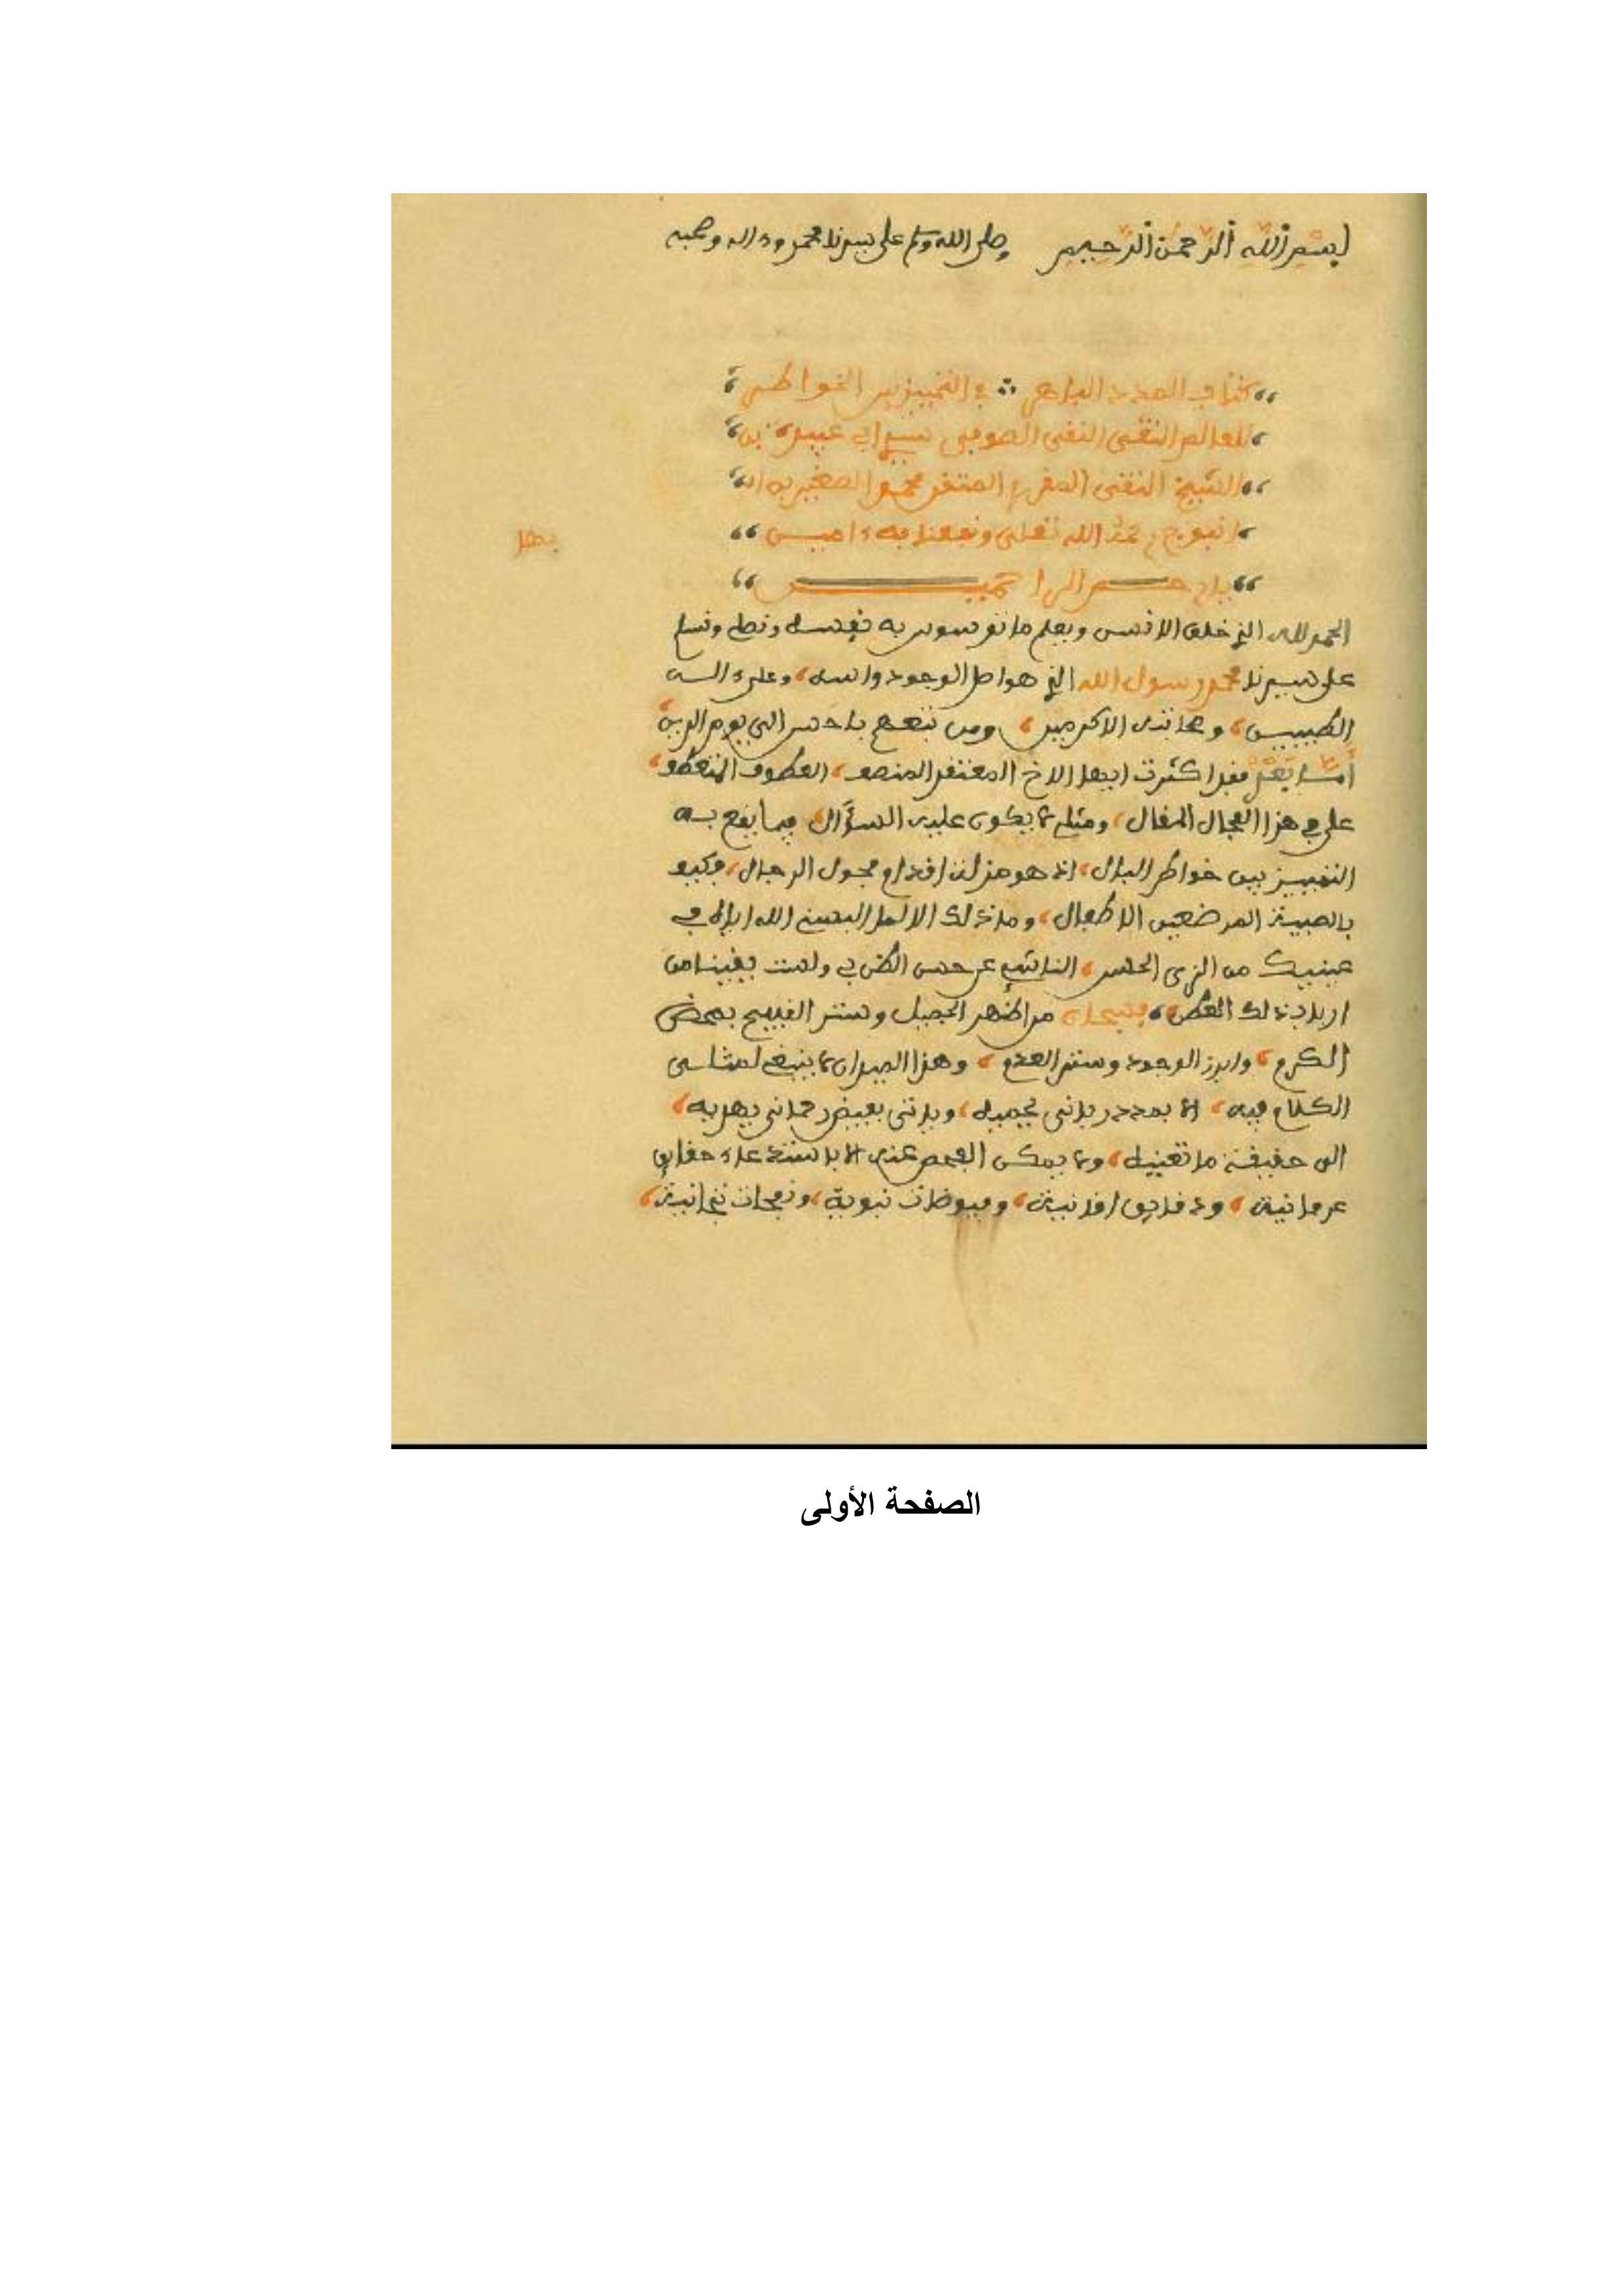 بسم الله الرحمن الرحيم وصلى الله وسلم على سيدنا محمد وءاله وصحبه
كتاب المدد الباهر في التمييز بين الخواطر
للعالم التقي النقي الصوفي سيدي أبي عبيدة بن
الشيخ التقي المقرئ المتقن محمد الصغير بن
انبوج رحمه الله تعالى ونفعنا به ءامين
بها
يا ارحم الراحمين
الحمد لله الذي خلق الانس ويعلم ما توسوس به نفسه ونصلي ونسلم
على سيدنا محمد رسول الله الذي هو اصل الوجود واسه وعلى ءاله
الطيبين وصحابته الاكرمين ومن تبعهم باحسن الى يوم الدين
أما بعد فقد اكثرت ايها الاخ المعتقد المنصف العطوف المتعطف
علي في هذا المجال المقال ومثلي لا يكون عليه السؤال فيما يقع به
التمييز بين خواطر البال اذ هو مزلة اقدام فحول الرجال فكيف
بالصبية المرضعين الاطفال وما ذلك الا لما البسني الله اياه في
عينيك من الزي الحسن الناشئ عن حسن الظن بي ولست يقينا من
ارباب ذلك العطن فسبحان من اظهر الجميل وستر القبيح بمحض
الكرم وابرز الوجود وستر العدم وهذا الميدان لا ينبغي لمثلي
الكلام فيه الا بمدد رباني يجميه وياتي بفيض رحماني يهديه
الى حقيقة ما تعنيه ولا يمكن الفحص عنه الا باستمداد حقايق
عرفانية ودقايق وفيوضات نبوية ونفحات تجانية